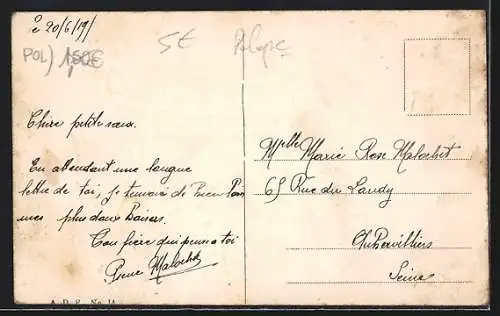 Le 20/6/19
5€ Pologne
POL) 150€
Chère petite sœur.
En attendant une longue
lettre de toi, je t'envoie de Bien loin
mes plus doux Baisers.
Ton frère qui pense a toi
Pierre Malochet
Melle Marie Rose Malochet
65 Rue du Landy
Aubervilliers
Seine